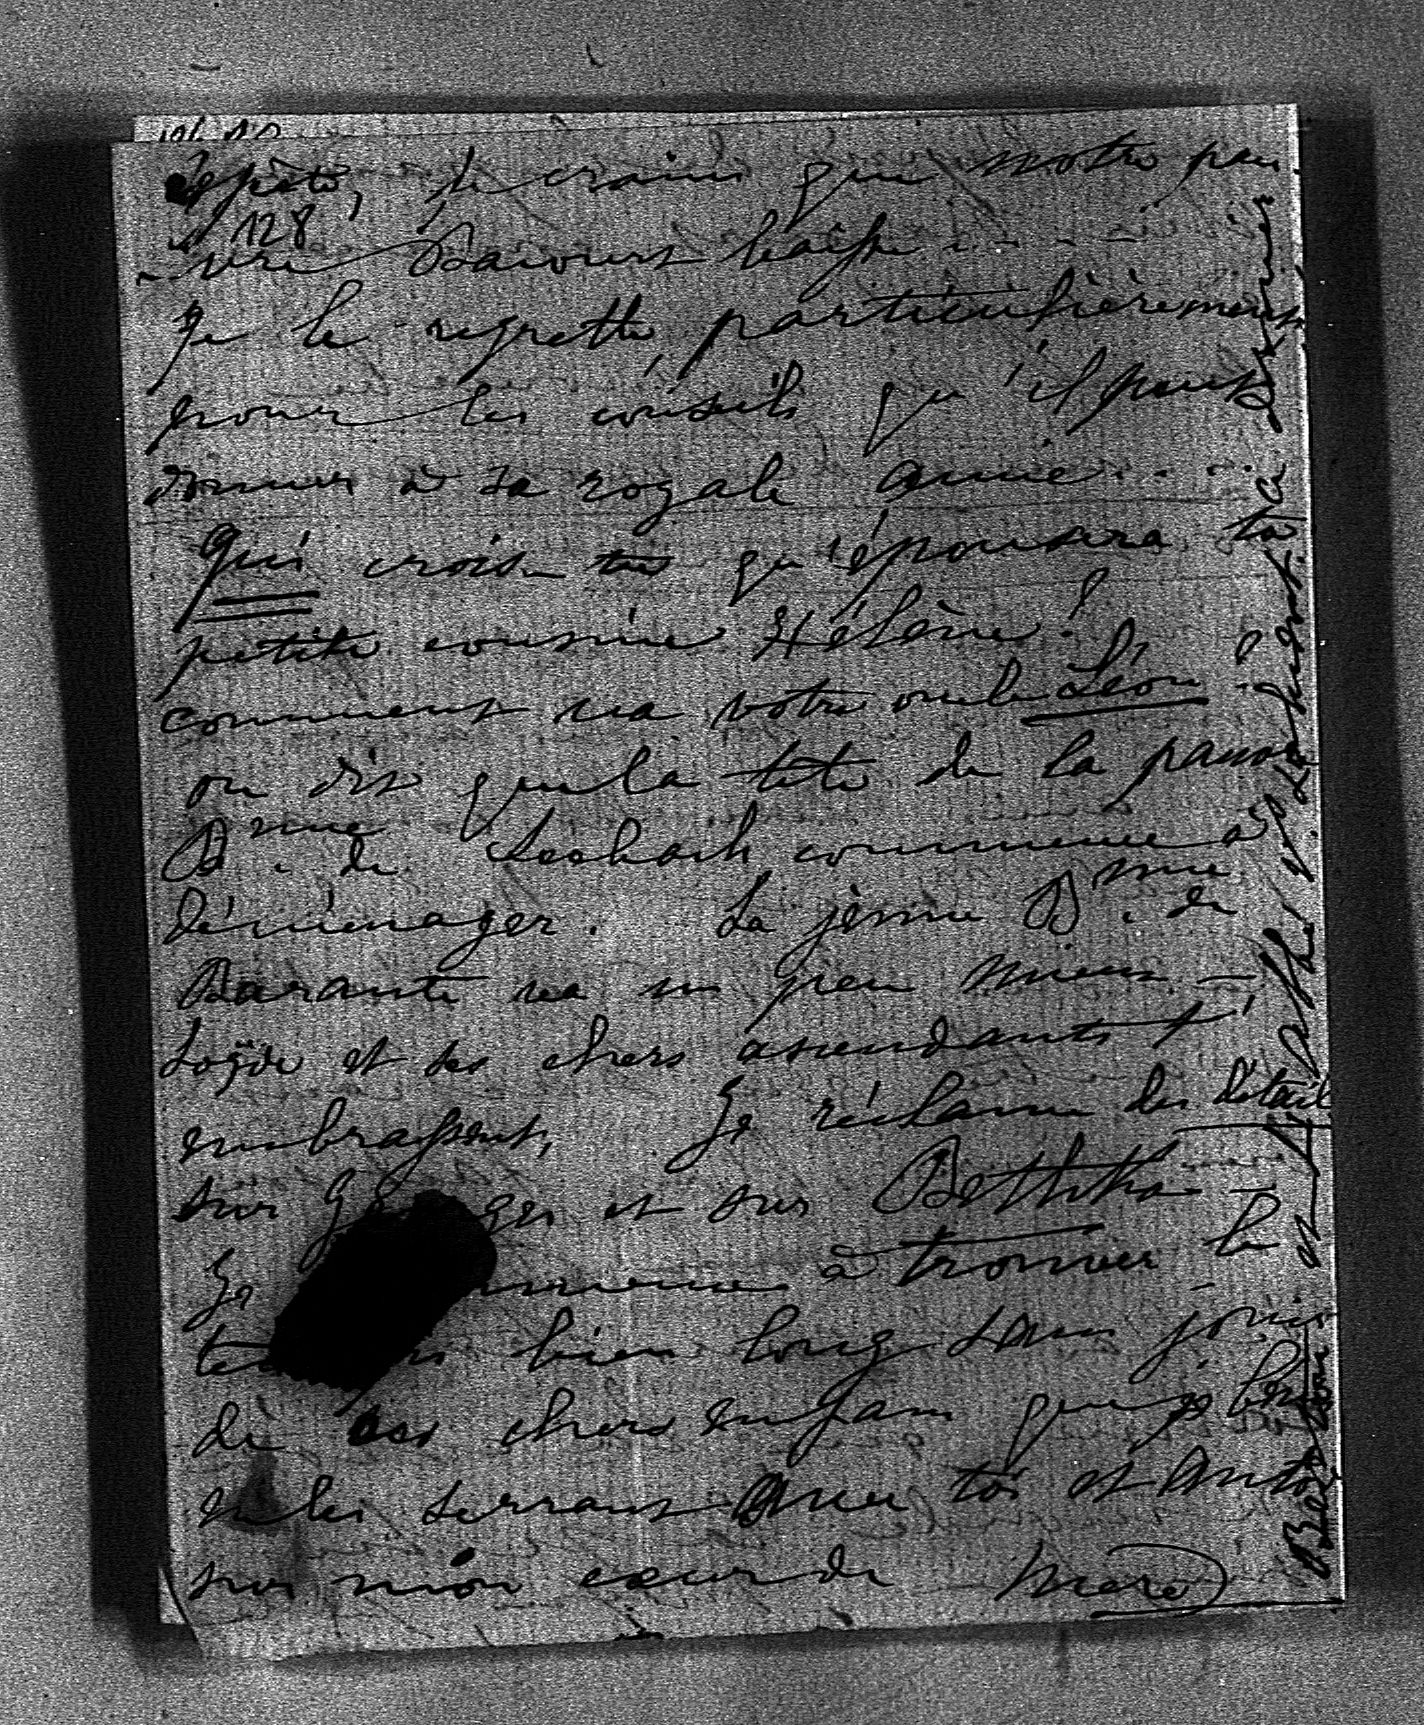 répète, je crains que notre pau
128
vre Bacourt baisse . . . .
Je le regrette particulièrement
pour les conseils qu'il peut
donner à sa royale amie . . . .
Qui crois-tu qu'épousera ta
petite cousine Hélène ?
comment va votre oncle Léon ?
on dit que la tête de la pauvre
Bnne de Seebach commence à
déménager. La jeune Bnne de
Barante va un peu mieux —
et ses chers ascendants t'
embrassent, Je réclame des détails
sur Georges et sur
Je commence à trouver le
temps bien long sans jouir
de ces chers enfans que je bénis
en les serrant avec toi et
sur mon cœur de mère